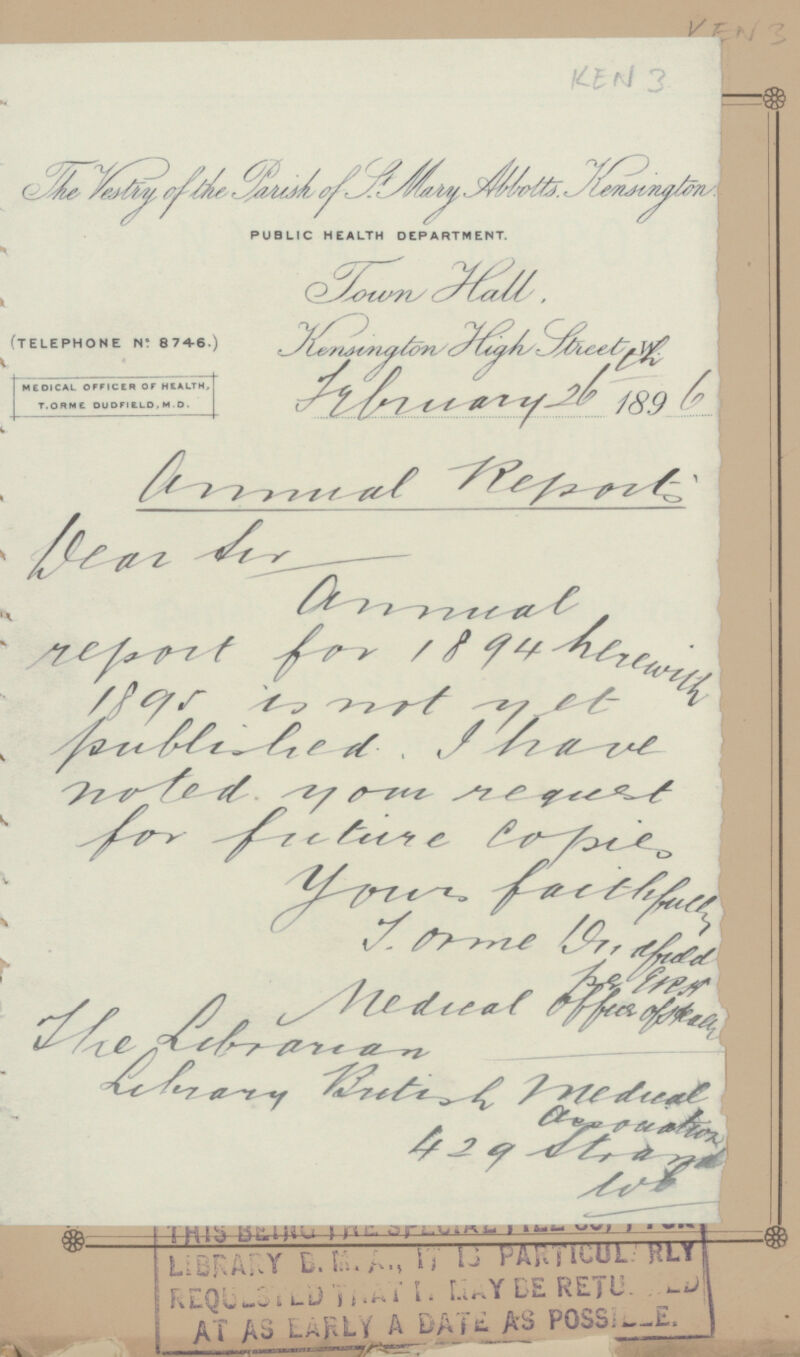 KEN 3
KEN 3
The Vestry of the Parish of St. Mary Abbotts. Kensington.
PUBLIC HEALTH DEPARTMENT.
Town Hall,
(TELEPHONE No. 8746.)
Kensington High Street, W.
MEDICAL OFFICER OF HEALTH,
T. ORME DUDFIELD, M.D.
February 26th 1896
Annual Reports
Dear Sir
Annual
report for 1894 herewith
1895 is not yet
published. I have
noted your request
for future copies
Yours faithfully
T. Orme Dudfield
Medical Officer of Health
The Librarian
Library British Medical
Association
429 Strand
WC
THIS BEING THE SPECIAL FILE COPY FOR
LIBRARY B.M.A., IT IS PARTICULARLY
REQUESTED THAT IT MAY BE RETURNED
AT AS EARLY A DATE AS POSSIBLE.